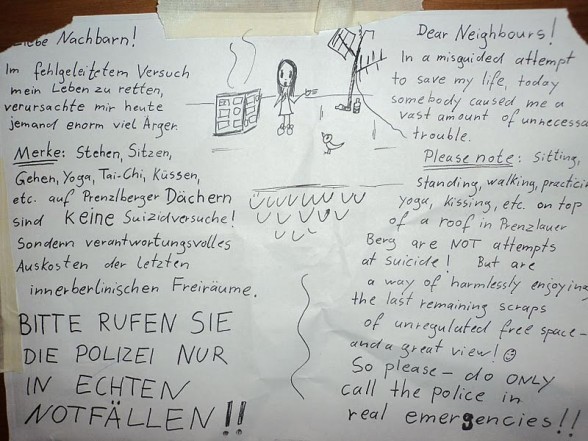 Liebe Nachbarn!
Im fehlgeleitetem Versuch
mein Leben zu retten,
verursachte mir heute
jemand enorm viel Ärger.
Merke: Stehen, Sitzen,
Gehen, Yoga, Tai-Chi, Küssen,
etc. auf Prenzlberger Dächern
sind keine Suizidversuche!
Sondern verantwortungsvolles
Auskosten der letzten
innerberlinischen Freiräume.
BITTE RUFEN SIE
DIE POLIZEI NUR
IN ECHTEN
NOTFÄLLEN!!
Dear Neighbours!
In a misguided attempt
to save my life, today
somebody caused me a
vast amount of unnecessa
trouble.
Please note: sitting,
standing, walking, practicin
yoga, kissing, etc. on top
of a roof in Prenzlauer
Berg are NOT attempts
at suicide! But are
a way of harmlessly enjoying
the last remaining scraps
of unregulated free space-
and a great view! ☺
So please - do ONLY
call the police in
real emergencies!!